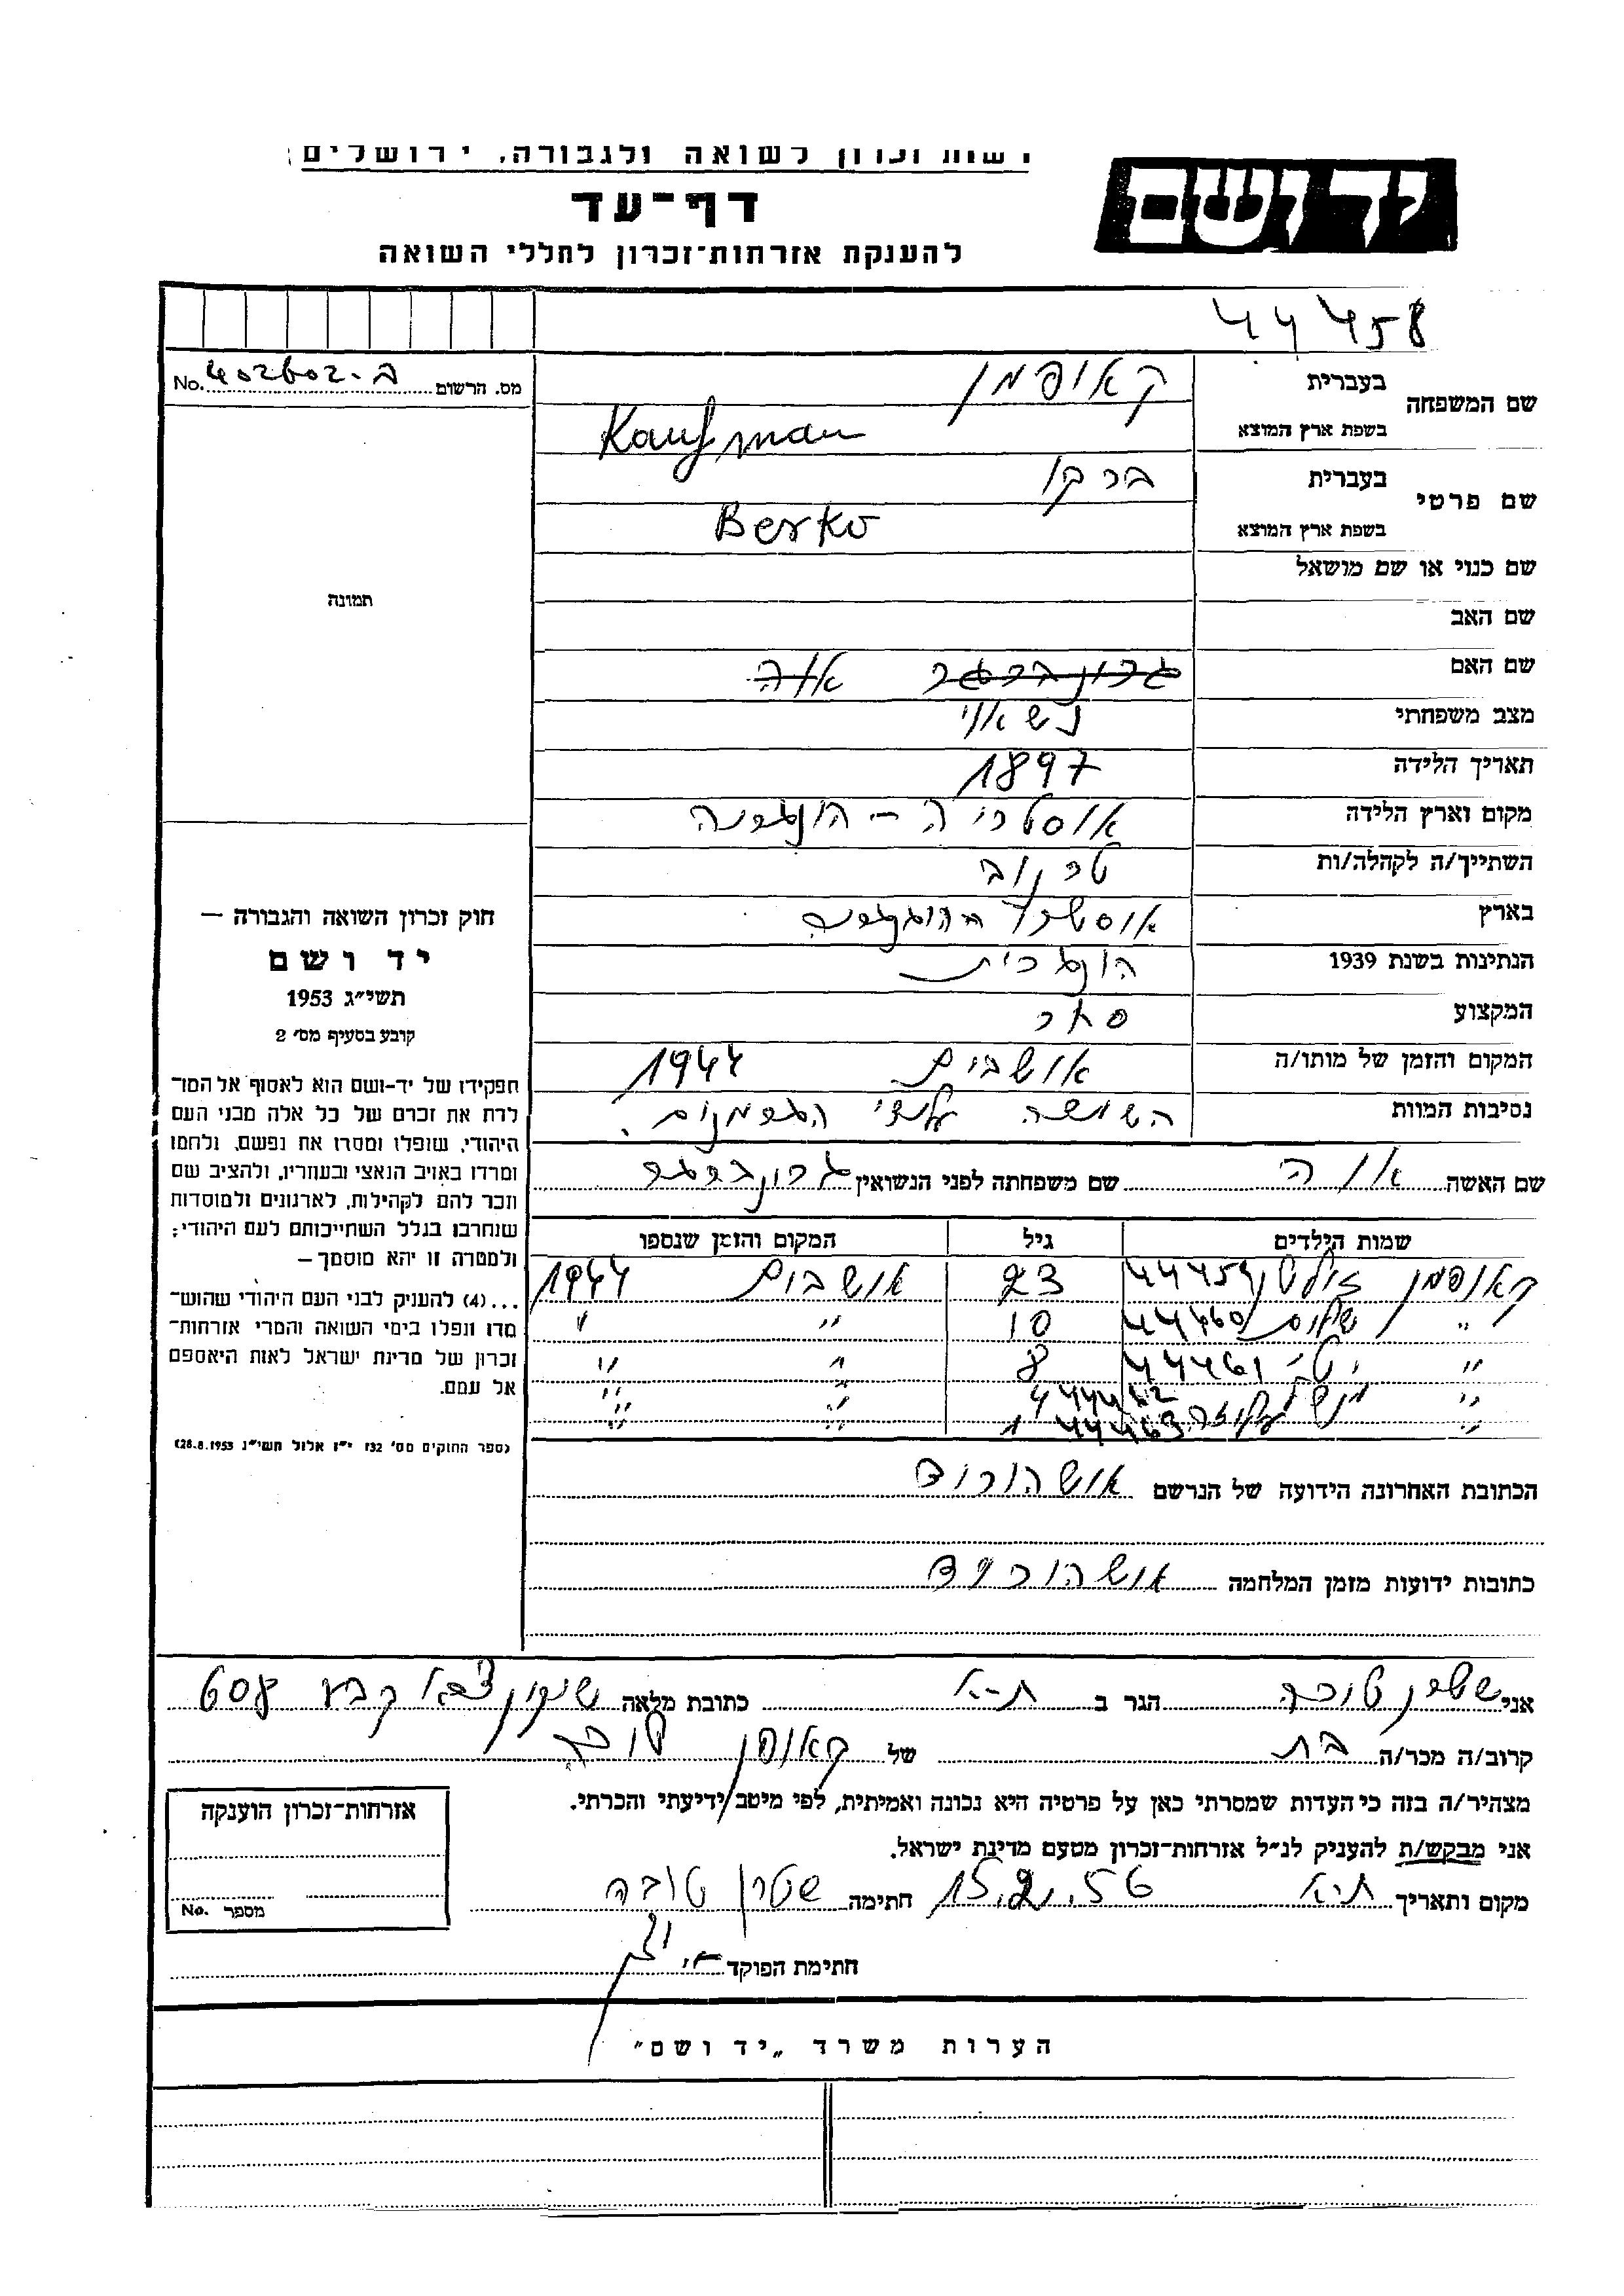 רשות זכרון לשואה ולגבורה, ירושלים
יד ושם
דף-עד
להענקת אזרחות-זכרון לחללי השואה
44458
מס. הרשום ב-402602 No.
שם המשפחה בעברית קאופמן
בשפת ארץ המוצא Kaufman
שם פרטי בעברית ברקו
בשפת ארץ המוצא Berko
שם כנוי או שם מושאל
שם האב
שם האם גרונברגר אווה
מצב משפחתי נשאוי
תאריך הלידה 1897
מקום וארץ הלידה אוסטריה - הונגריה
השתייך/ה לקהלה/ות
בארץ
הנתינות בשנת 1939 הונגרית
המקצוע סחר
המקום והזמן של מותו/ה אושבים 1944
נסיבות המוות הגרמנים.
שם האשה אווה שם משפחתה לפני הנשואין גרונברגר
שמות הילדים גיל המקום והזמן שנספו
קאופמן זולטן 44459 23 אושבים 1944
" שלום 44460 10 " "
" 44461 8 " "
" 44462 4 " "
" 44463 1 " "
הכתובת האחרונה הידועה של הנרשם אושהורוד
כתובות ידועות מזמן המלחמה אושהורוד
תמונה
חוק זכרון השואה והגבורה –
יד ושם
תשי״ג 1953
קובע בסעיף מס׳ 2
תפקידו של יד-ושם הוא לאסוף אל המו-
לדת את זכרם של כל אלה מבני העם
היהודי, שנפלו ומסרו את נפשם, נלחמו
ומרדו באויב הנאצי ובעוזריו, ולהציב שם
וזכר להם לקהילות, לארגונים ולמוסדות
שנחרבו בגלל השתייכותם לעם היהודי;
ולמטרה זו יהא מוסמך–
...(4) להעניק לבני העם היהודי שהוש-
מדו ונפלו בימי השואה והמרי אזרחות-
זכרון של מדינת ישראל לאות היאספם
אל עמם.
(ספר החוקים מס׳ 132 י״ז אלול תשי״ג 28.8.1953)
אני שטרן טובה הגר ב ת-א כתובת מלאה שיכון צבא קבע 608
קרוב/ה מכר/ה בת של קאופמן
מצהיר/ה בזה כי העדות שמסרתי כאן על פרטיה היא נכונה ואמיתית, לפי מיטב ידיעתי והכרתי.
אני מבקש/ת להעניק לנ״ל אזרחות-זכרון מטעם מדינת ישראל.
מקום ותאריך ת-א 15.2.56 חתימה שטרן טובה
חתימת הפוקד
אזרחות-זכרון הוענקה
מספר No.
הערות משרד „יד ושם"